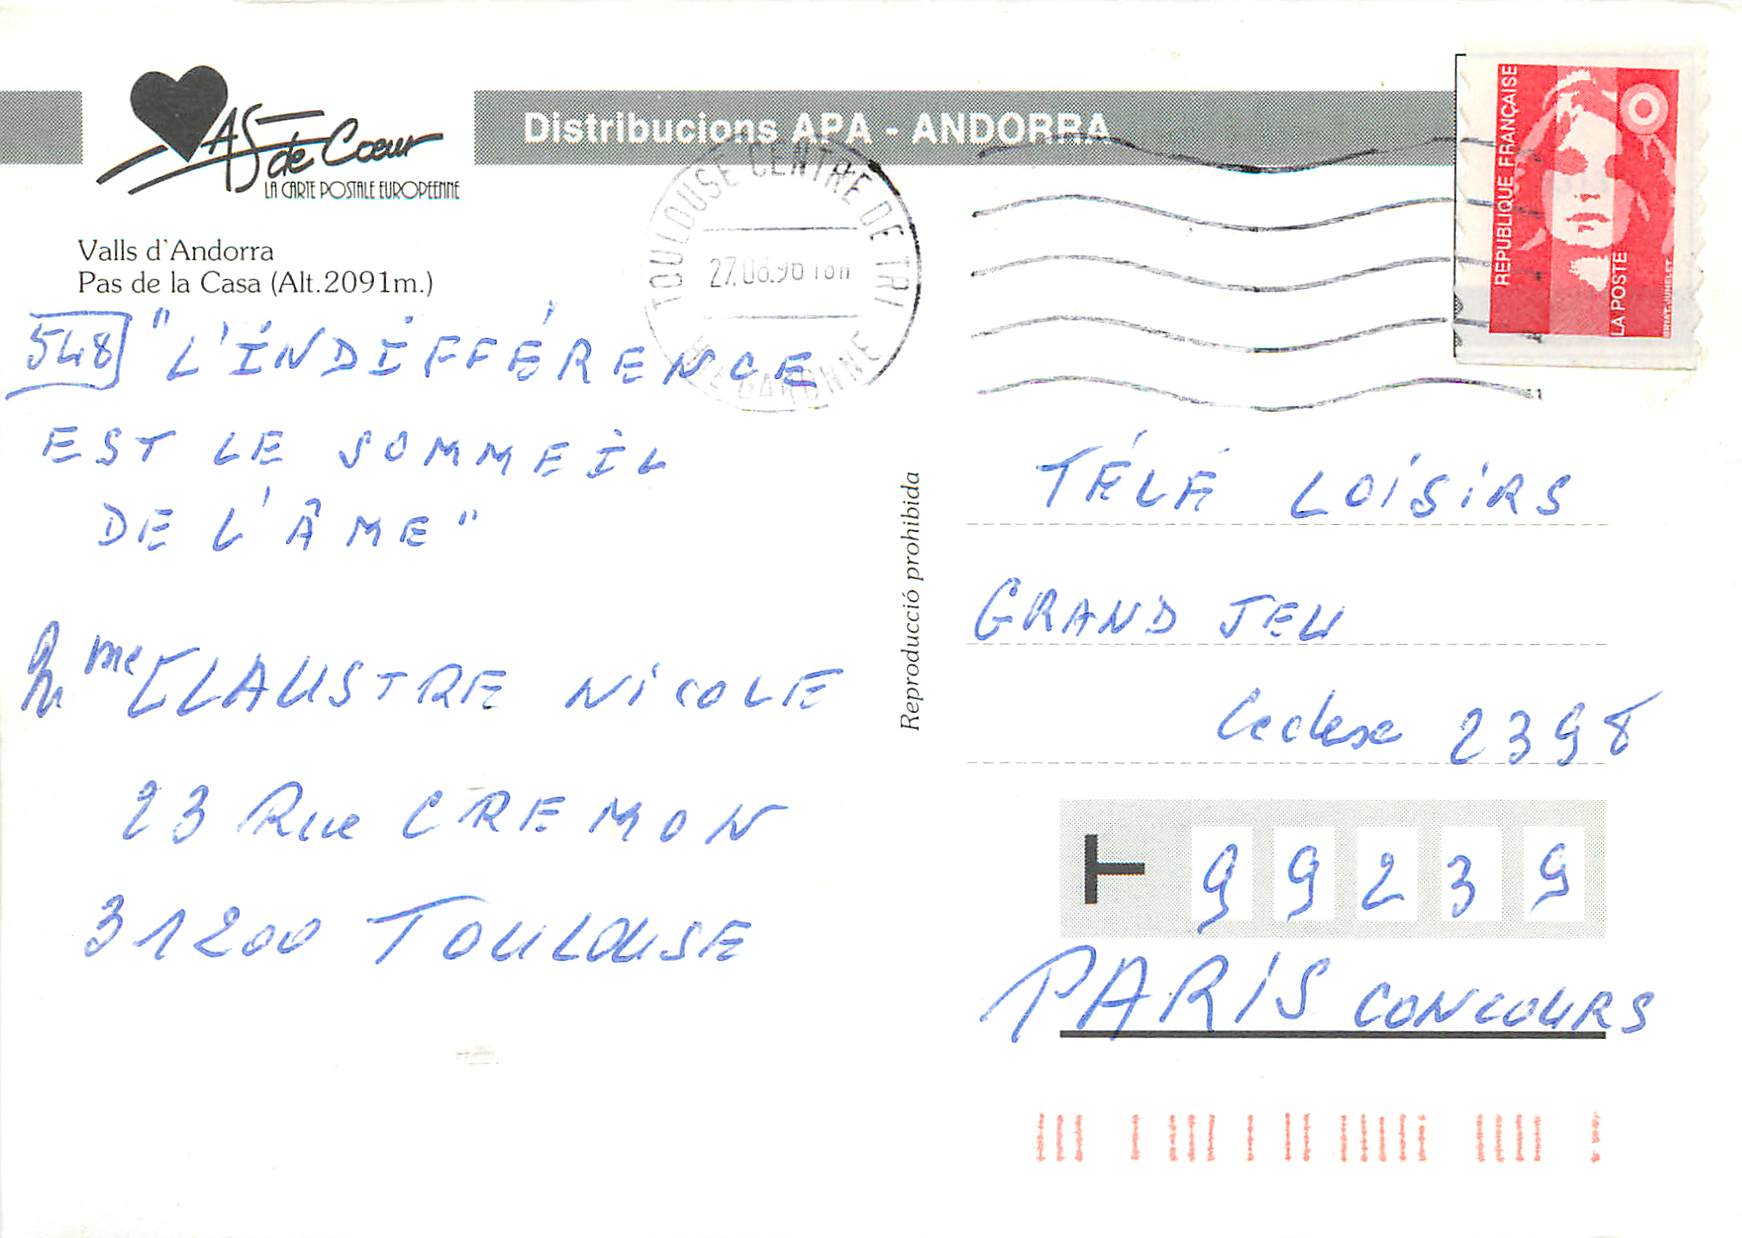 AS de Cœur
LA CARTE POSTALE EUROPEENNE
Distribucions APA - ANDORRA
Valls d'Andorra
Pas de la Casa (Alt.2091m.)
TOULOUSE CENTRE DE TRI
27.08.96 18H
GARONNE
RÉPUBLIQUE FRANÇAISE
LA POSTE
548 "L'INDIFFÉRENCE
EST LE SOMMEIL
DE L'ÂME"
Mme CLAUSTRE NICOLE
23 Rue CREMON
31200 TOULOUSE
Reproducció prohibida
TÉLÉ LOISIRS
GRAND JEU
Cedex 2398
99239
PARIS CONCOURS